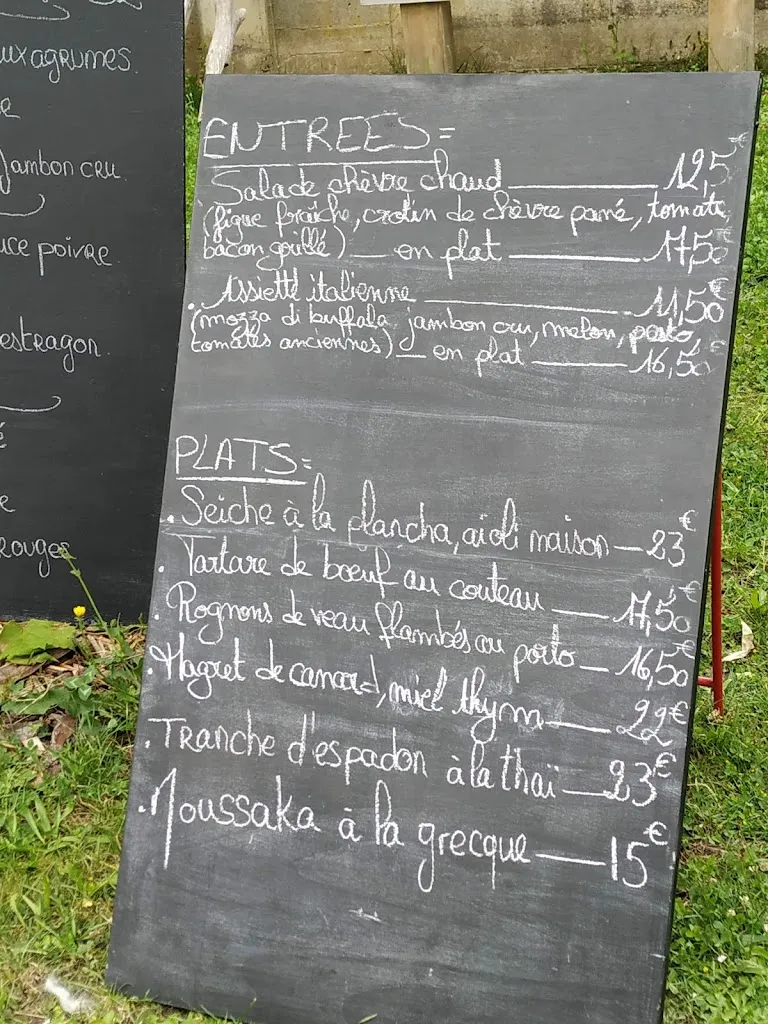 ux agrumes
e
Jambon cru
uce poivre
estragon
é
e
rouges
ENTREES =
Salade chèvre chaud 12,5€
(figue fraîche, crotin de chèvre pané, tomate,
bacon grillé) — en plat — 17,50€
. Assiette italienne — 11,50€
(mozza di buffala, jambon cru, melon, pesto,
tomates anciennes) — en plat — 16,50€
PLATS =
. Seiche à la plancha, aïoli maison — 23€
. Tartare de boeuf au couteau — 17,50€
. Rognons de veau flambés au porto — 16,50€
. Magret de canard, miel thym — 22€
. Tranche d'espadon à la thaï — 23€
. Moussaka à la grecque — 15€